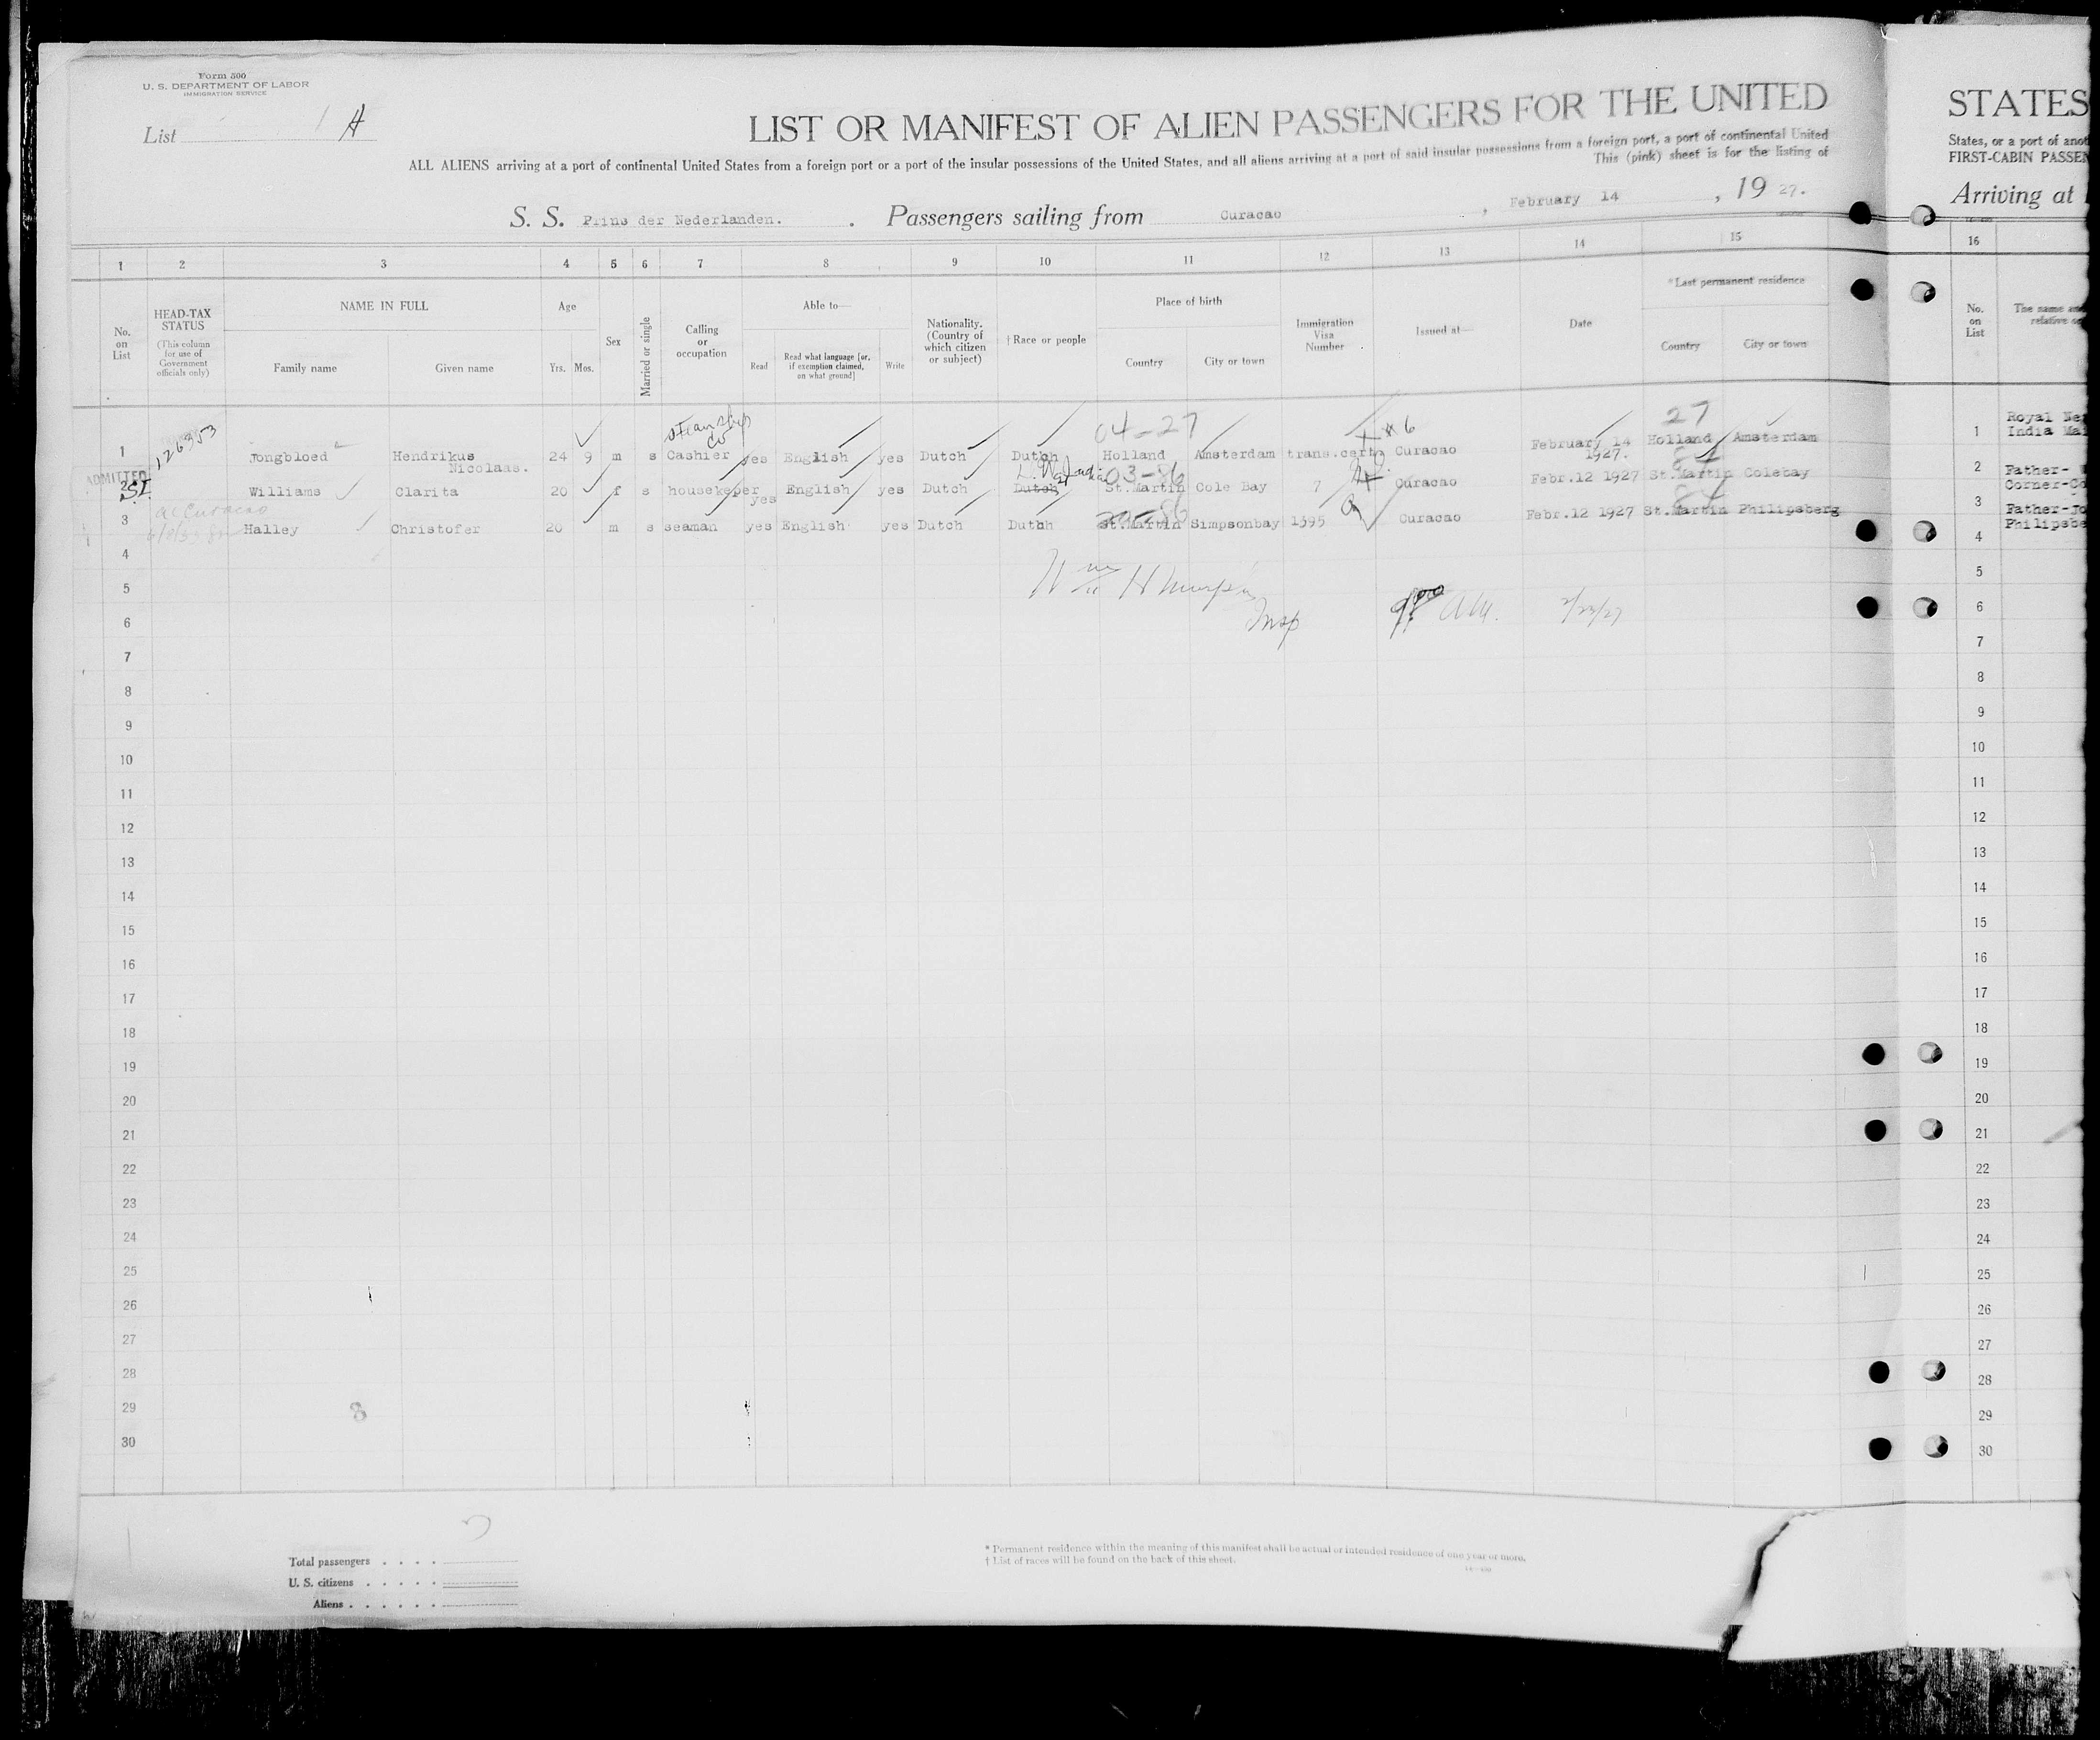 Form 500
U. S. DEPARTMENT OF LABOR
IMMIGRATION SERVICE
List 1 A
LIST OR MANIFEST OF ALIEN PASSENGERS FOR THE UNITED
ALL ALIENS arriving at a port of continental United States from a foreign port or a port of the insular possessions of the United States, and all aliens arriving at a port of said insular possessions from a foreign port, a port of continental United
This (pink) sheet is for the listing of
S. S. Prins der Nederlanden. Passengers sailing from Curacao, February 14, 19 27.
1 2 3 4 5 6 7 8 9 10 11 12 13 14 15
No. on List
HEAD-TAX STATUS
(This column for use of Government officials only)
NAME IN FULL
Family name Given name
Age
Yrs. Mos.
Sex
Married or single
Calling or occupation
Able to—
Read
Read what language [or, if exemption claimed, on what ground]
Write
Nationality. (Country of which citizen or subject)
†Race or people
Place of birth
Country City or town
Immigration Visa Number
Issued at—
Date
*Last permanent residence
Country City or town
126353
steamship Co
04-27
#6
27
1 Jongbloed Hendrikus Nicolaas. 24 9 m s Cashier yes English yes Dutch Dutch Holland Amsterdam trans.cert. Curacao February 14 1927. Holland Amsterdam
ADMITTED
SI
03-86
2 Williams Clarita 20 f s housekeper yes English yes Dutch Dutch St.Martin Cole Bay 7 Curacao Febr.12 1927 St.Martin Colebay
3 Halley Christofer 20 m s seaman yes English yes Dutch Dutch St.Martin Simpsonbay 1395 Curacao Febr.12 1927 St.Martin Philipsberg
4
5
Insp
2/23/27
6
7
8
9
10
11
12
13
14
15
16
17
18
19
20
21
22
23
24
25
26
27
28
29
8
30
Total passengers . . . .
U. S. citizens . . . . .
Aliens . . . . . .
* Permanent residence within the meaning of this manifest shall be actual or intended residence of one year or more.
† List of races will be found on the back of this sheet.
STATES
States, or a port of anot
FIRST-CABIN PASSEN
Arriving at
16
No. on List
The name and
relative
1 Royal Ne
India Mai
2 Father-
Corner-Co
3 Father-Jo
Philipsbe
4
5
6
7
8
9
10
11
12
13
14
15
16
17
18
19
20
21
22
23
24
25
26
27
28
29
30